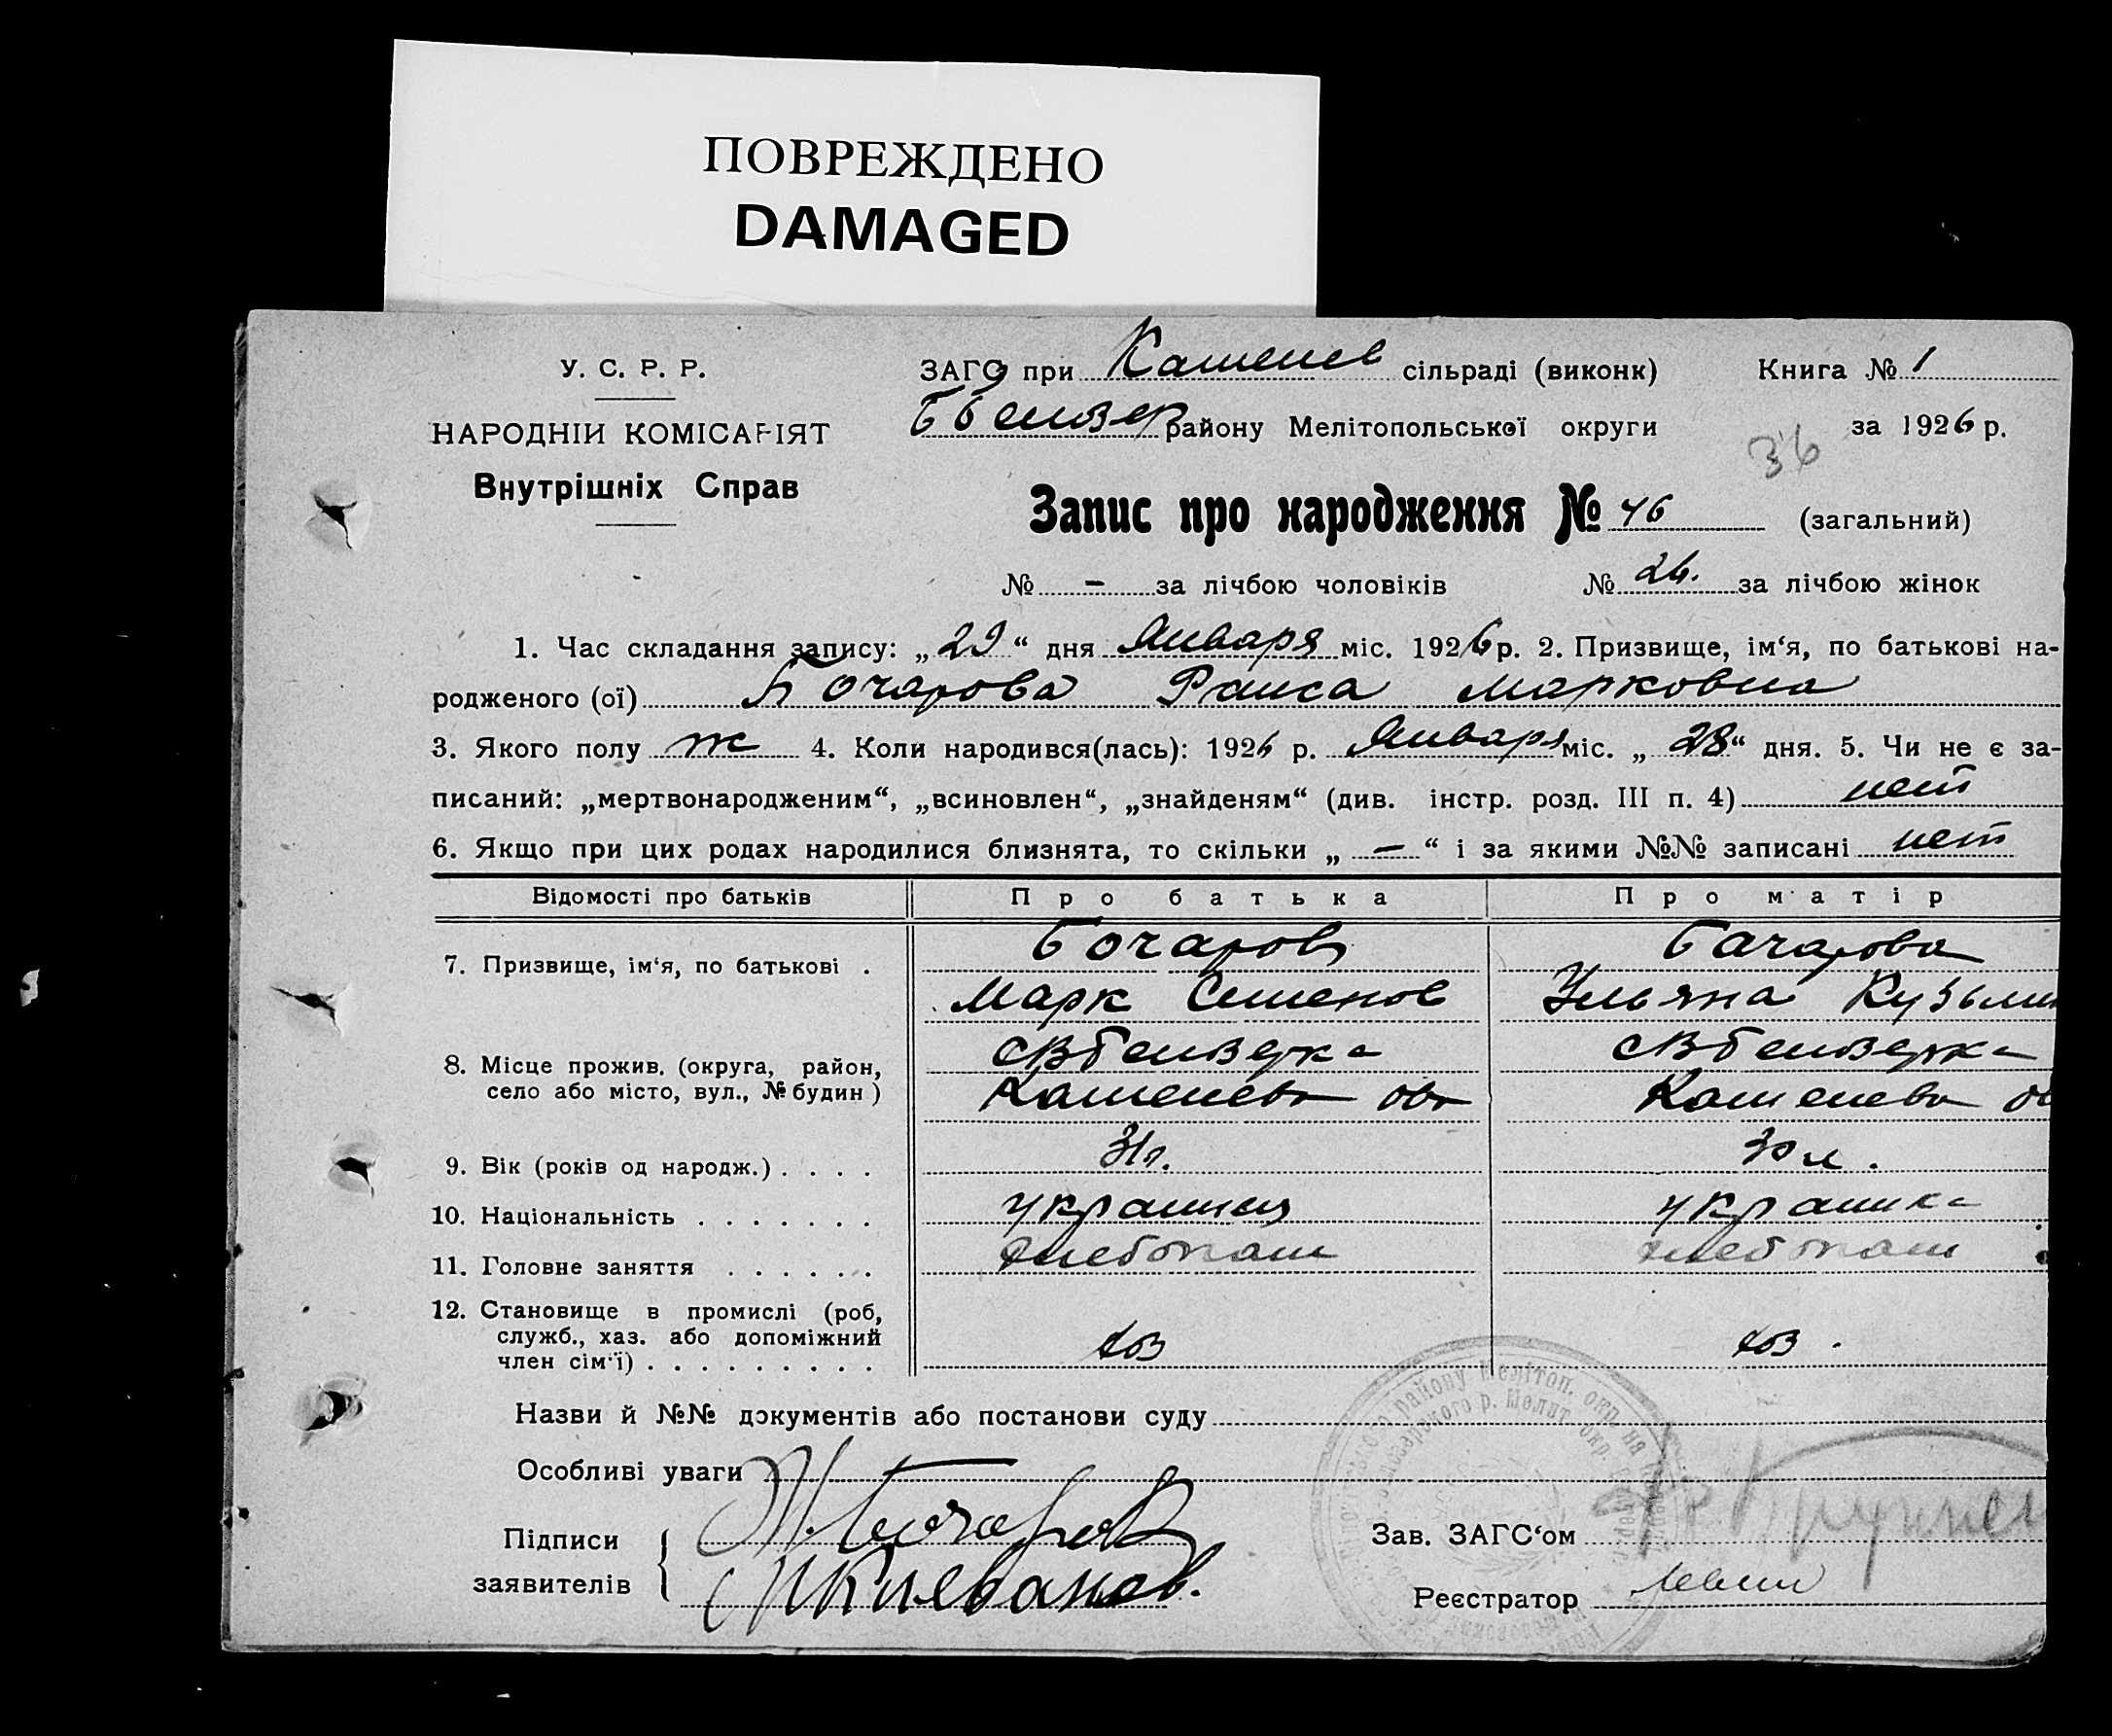 ПОВРЕЖДЕНО
DAMAGED
У. С. Р. Р.
НАРОДНІЙ КОМІСАРІЯТ
Внутрішніх Справ
ЗАГС при Каменев сільраді (виконк) Книга № 1
району Мелітопольської округи за 1926 р.
36
Запис про народження № 46 (загальний)
№ - за лічбою чоловіків № 26. за лічбою жінок
1. Час складання запису: „29“ дня Января міс. 1926 р. 2. Призвище, ім‘я, по батькові на-
родженого (ої) Бочарова Раиса Марковна
3. Якого полу ж 4. Коли народився(лась): 1926 р. Января міс. „28“ дня. 5. Чи не є за-
писаний: „мертвонародженим“, „всиновлен“, „знайденям“ (див. інстр. розд. III п. 4) нет
6. Якщо при цих родах народилися близнята, то скільки „-“ і за якими №№ записані нет
Відомості про батьків Про батька Про матір
7. Призвище, ім‘я, по батькові . Бочаров Бачарова
Марк Семенов Ульяна Кузьмин
8. Місце прожив. (округа, район,
село або місто, вул., № будин)
9. Вік (років од народж.) . . . . 31 л. 30 л.
10. Національність . . . . . . . украинец украинка
11. Головне заняття . . . . . . хлебопаш хлебопаш
12. Становище в промислі (роб,
служб., хаз. або допоміжний
член сім‘ї) . . . . . . . . . хоз хоз.
Назви й №№ документів або постанови суду
Особливі уваги
Підписи М. Бочаров
заявителів
Зав. ЗАГС‘ом
Реєстратор